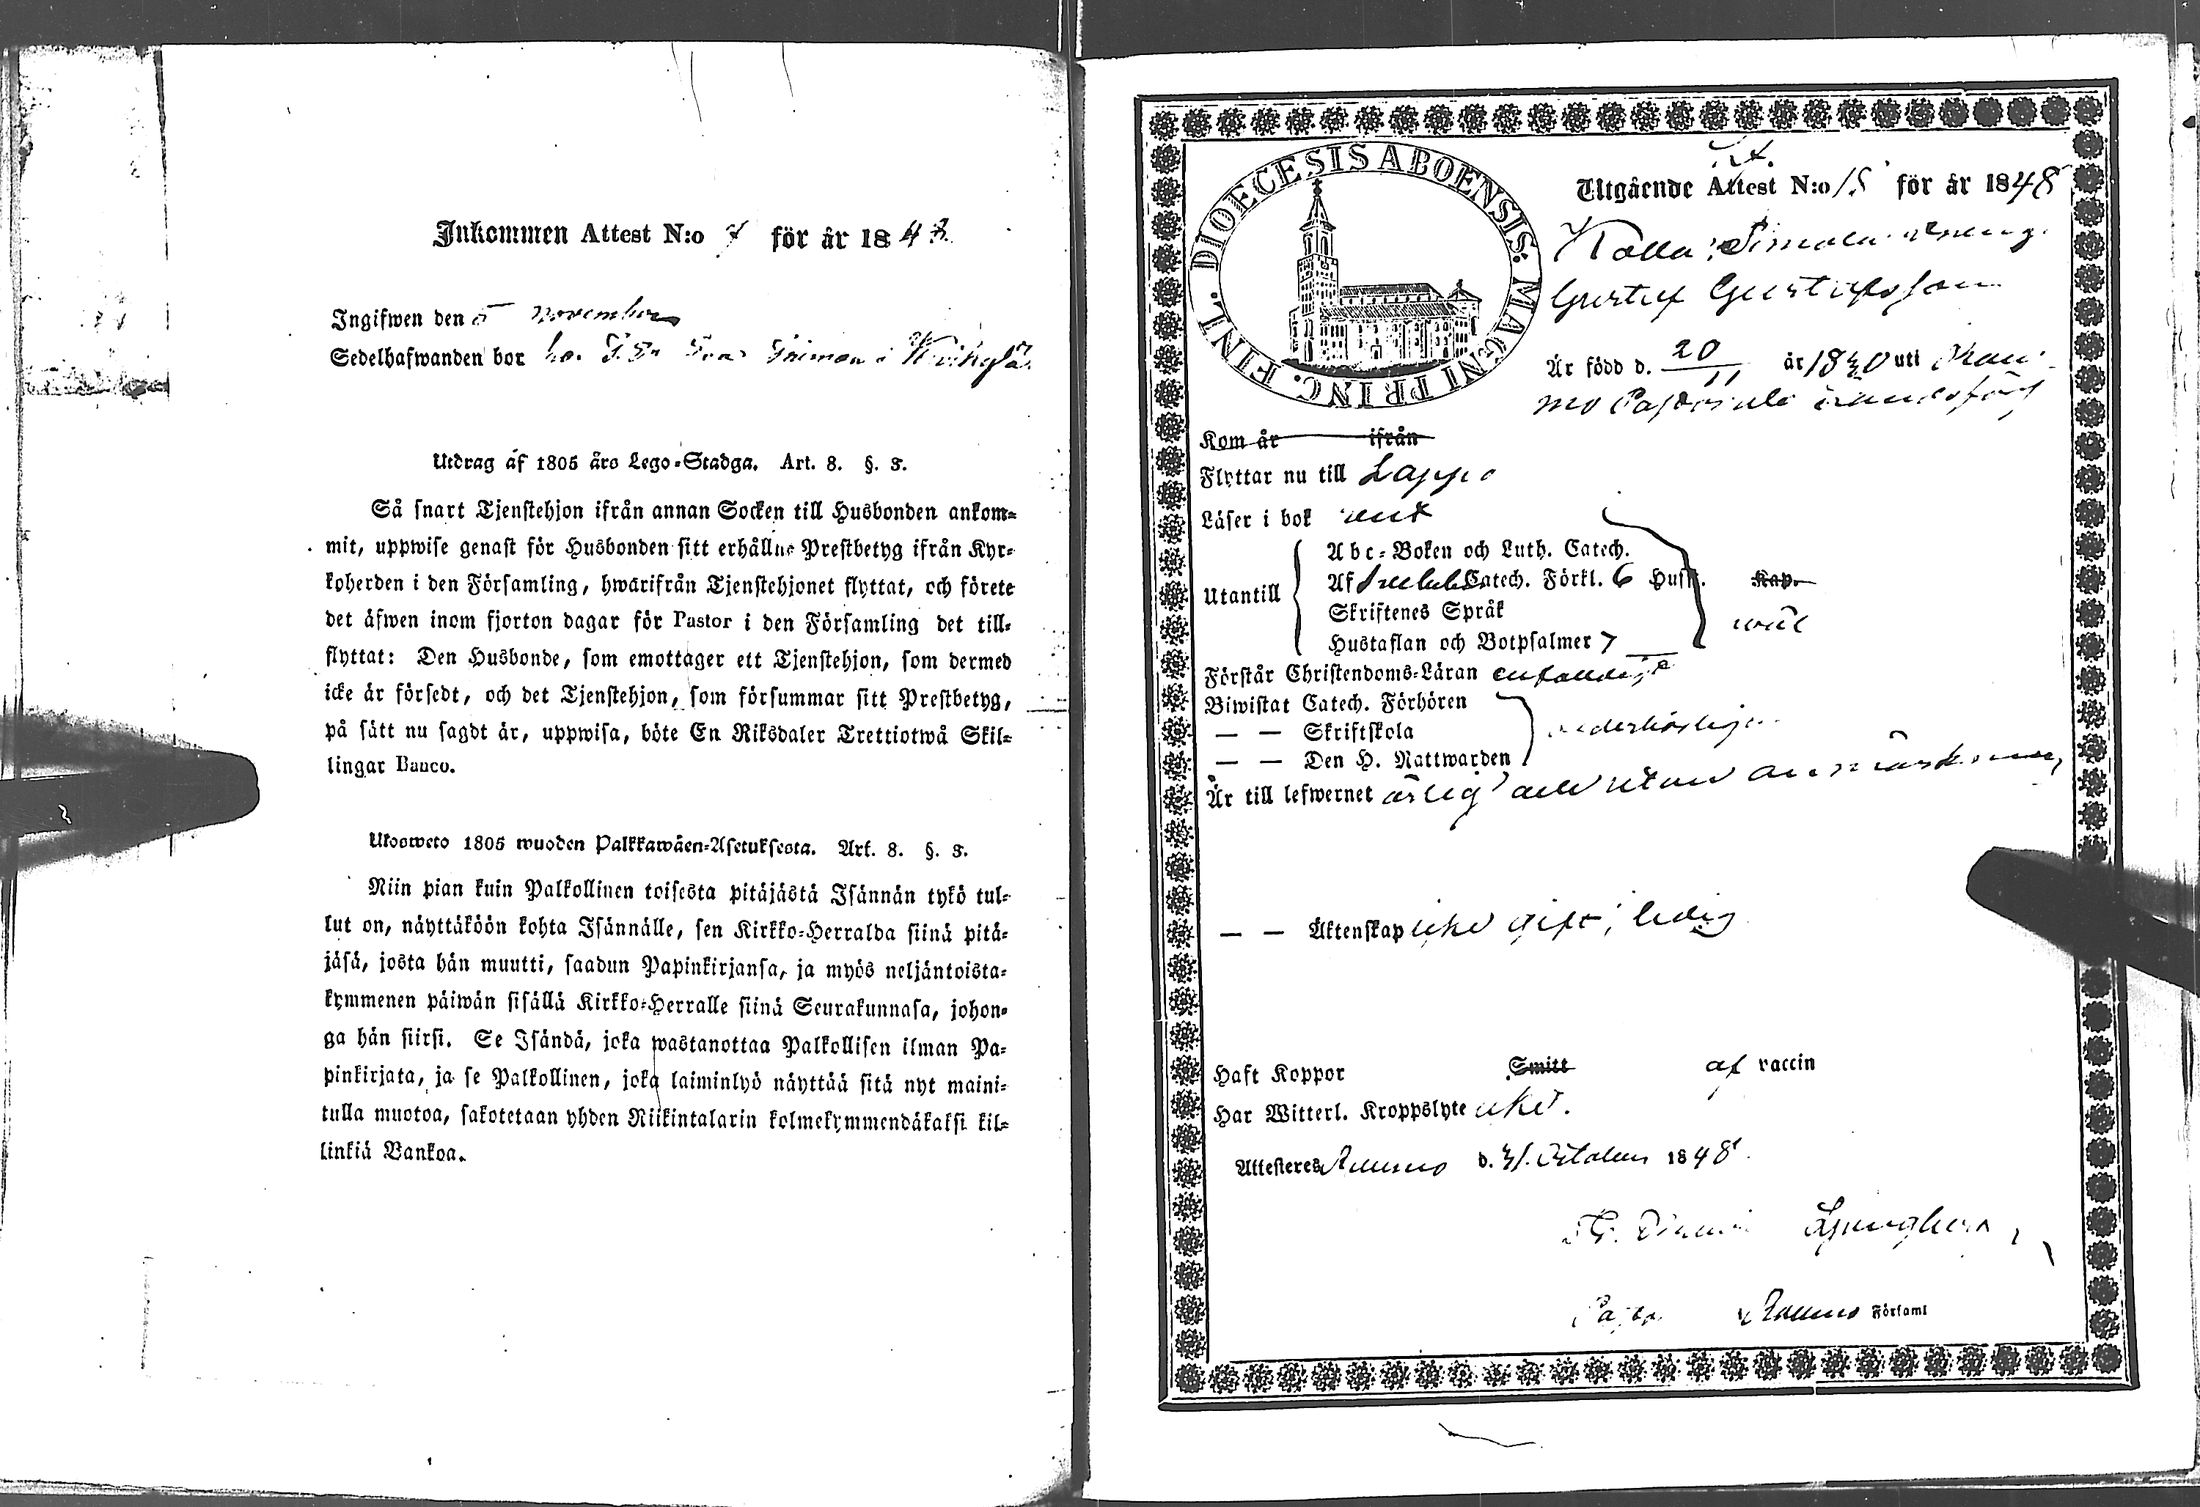 Inkommen Attest N:o 7 för år 184
Ingifwen den 5 november
Sedelhafwanden bor hos
Utdrag af 1805 års Lego-Stadga. Art. 8. §. 3.
Så snart Tjenstehjon ifrån annan Socken till Husbonden ankom-
mit, uppwise genast för Husbonden sitt erhållne Prestbetyg ifrån Kyr-
koherden i den Församling, hwarifrån Tjenstehjonet flyttat, och förete
det äfwen inom fjorton dagar för Pastor i den Församling det till-
flyttat: Den Husbonde, som emottager ett Tjenstehjon, som dermed
icke är försedt, och det Tjenstehjon, som försummar sitt Prestbetyg,
på sätt nu sagdt är, uppwisa, böte En Riksdaler Trettiotwå Skil-
lingar Banco.
Utosweto 1805 wuoden Palkkawäen-Asetuksesta. Art. 8. §. 3.
Niin pian kuin Palkollinen toisesta pitäjästä Isännän tykö tul-
lut on, näyttäköön kohta Isännälle, sen Kirkko-Herralda siinä pitä-
jäsä, josta hän muutti, saadun Papinkirjansa, ja myös neljäntoista-
kymmenen päiwän sisällä Kirkko-Herralle siinä Seurakunnasa, johon-
ga hän siirsi. Se Isändä, joka wastanottaa Palkollisen ilman Pa-
pinkirjata, ja se Palkollinen, joka laiminlyö näyttää sitä nyt maini-
tulla muotoa, sakotetaan yhden Riikintalarin kolmekymmendäkaksi kil-
linkiä Bankoa.
DIOECESIS ABOENSIS. MAGNI PRINC. FINL.
Utgående Attest N:o 15 för år 1848
Simola dreng
Gustaf Gustafsson
Är född d. 20/11 år 1830 uti Rau-
mo Pastorats landsförs
Kom år ifrån
Flyttar nu till Lappo
Läser i bok rent
Utantill
Abc-Boken och Luth. Catech.
Af Catech. Förkl. 6 Huff. Kap.
Skriftenes Språk
Hustaflan och Botpsalmer 7
wäl
Förstår Christendoms-Läran enfaldige
Biwistat Catech. Förhören
— — Skriftskola
— — Den H. Nattwarden
wederbörligen
Är till lefwernet ärlig och utan anmärkning
— — Äktenskap icke gift, ledig
Haft Koppor Smitt af vaccin
Har Witterl. Kroppslyte icke.
Attesteres Raumo d. 31. October 1848
Ljungberg
Pastor i Raumo Församl